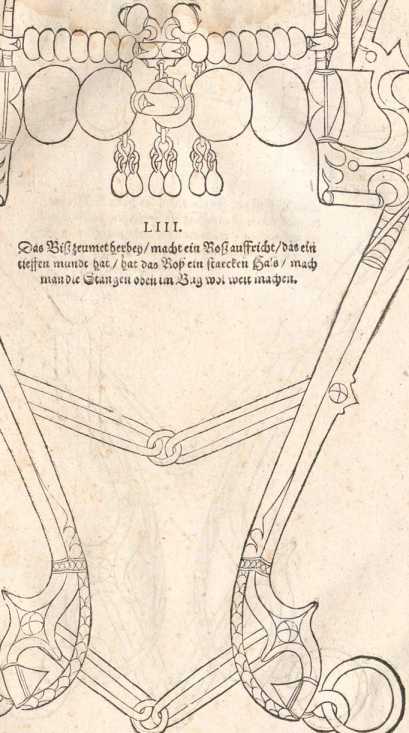 LIII.
Das Biß zeumet herbey/ macht ein Roß auffricht/ das ein
tieffen mundt hat/ hat das Roß ein starcken Hals/ mach
man die Stangen oben im Bug wol weit machen.